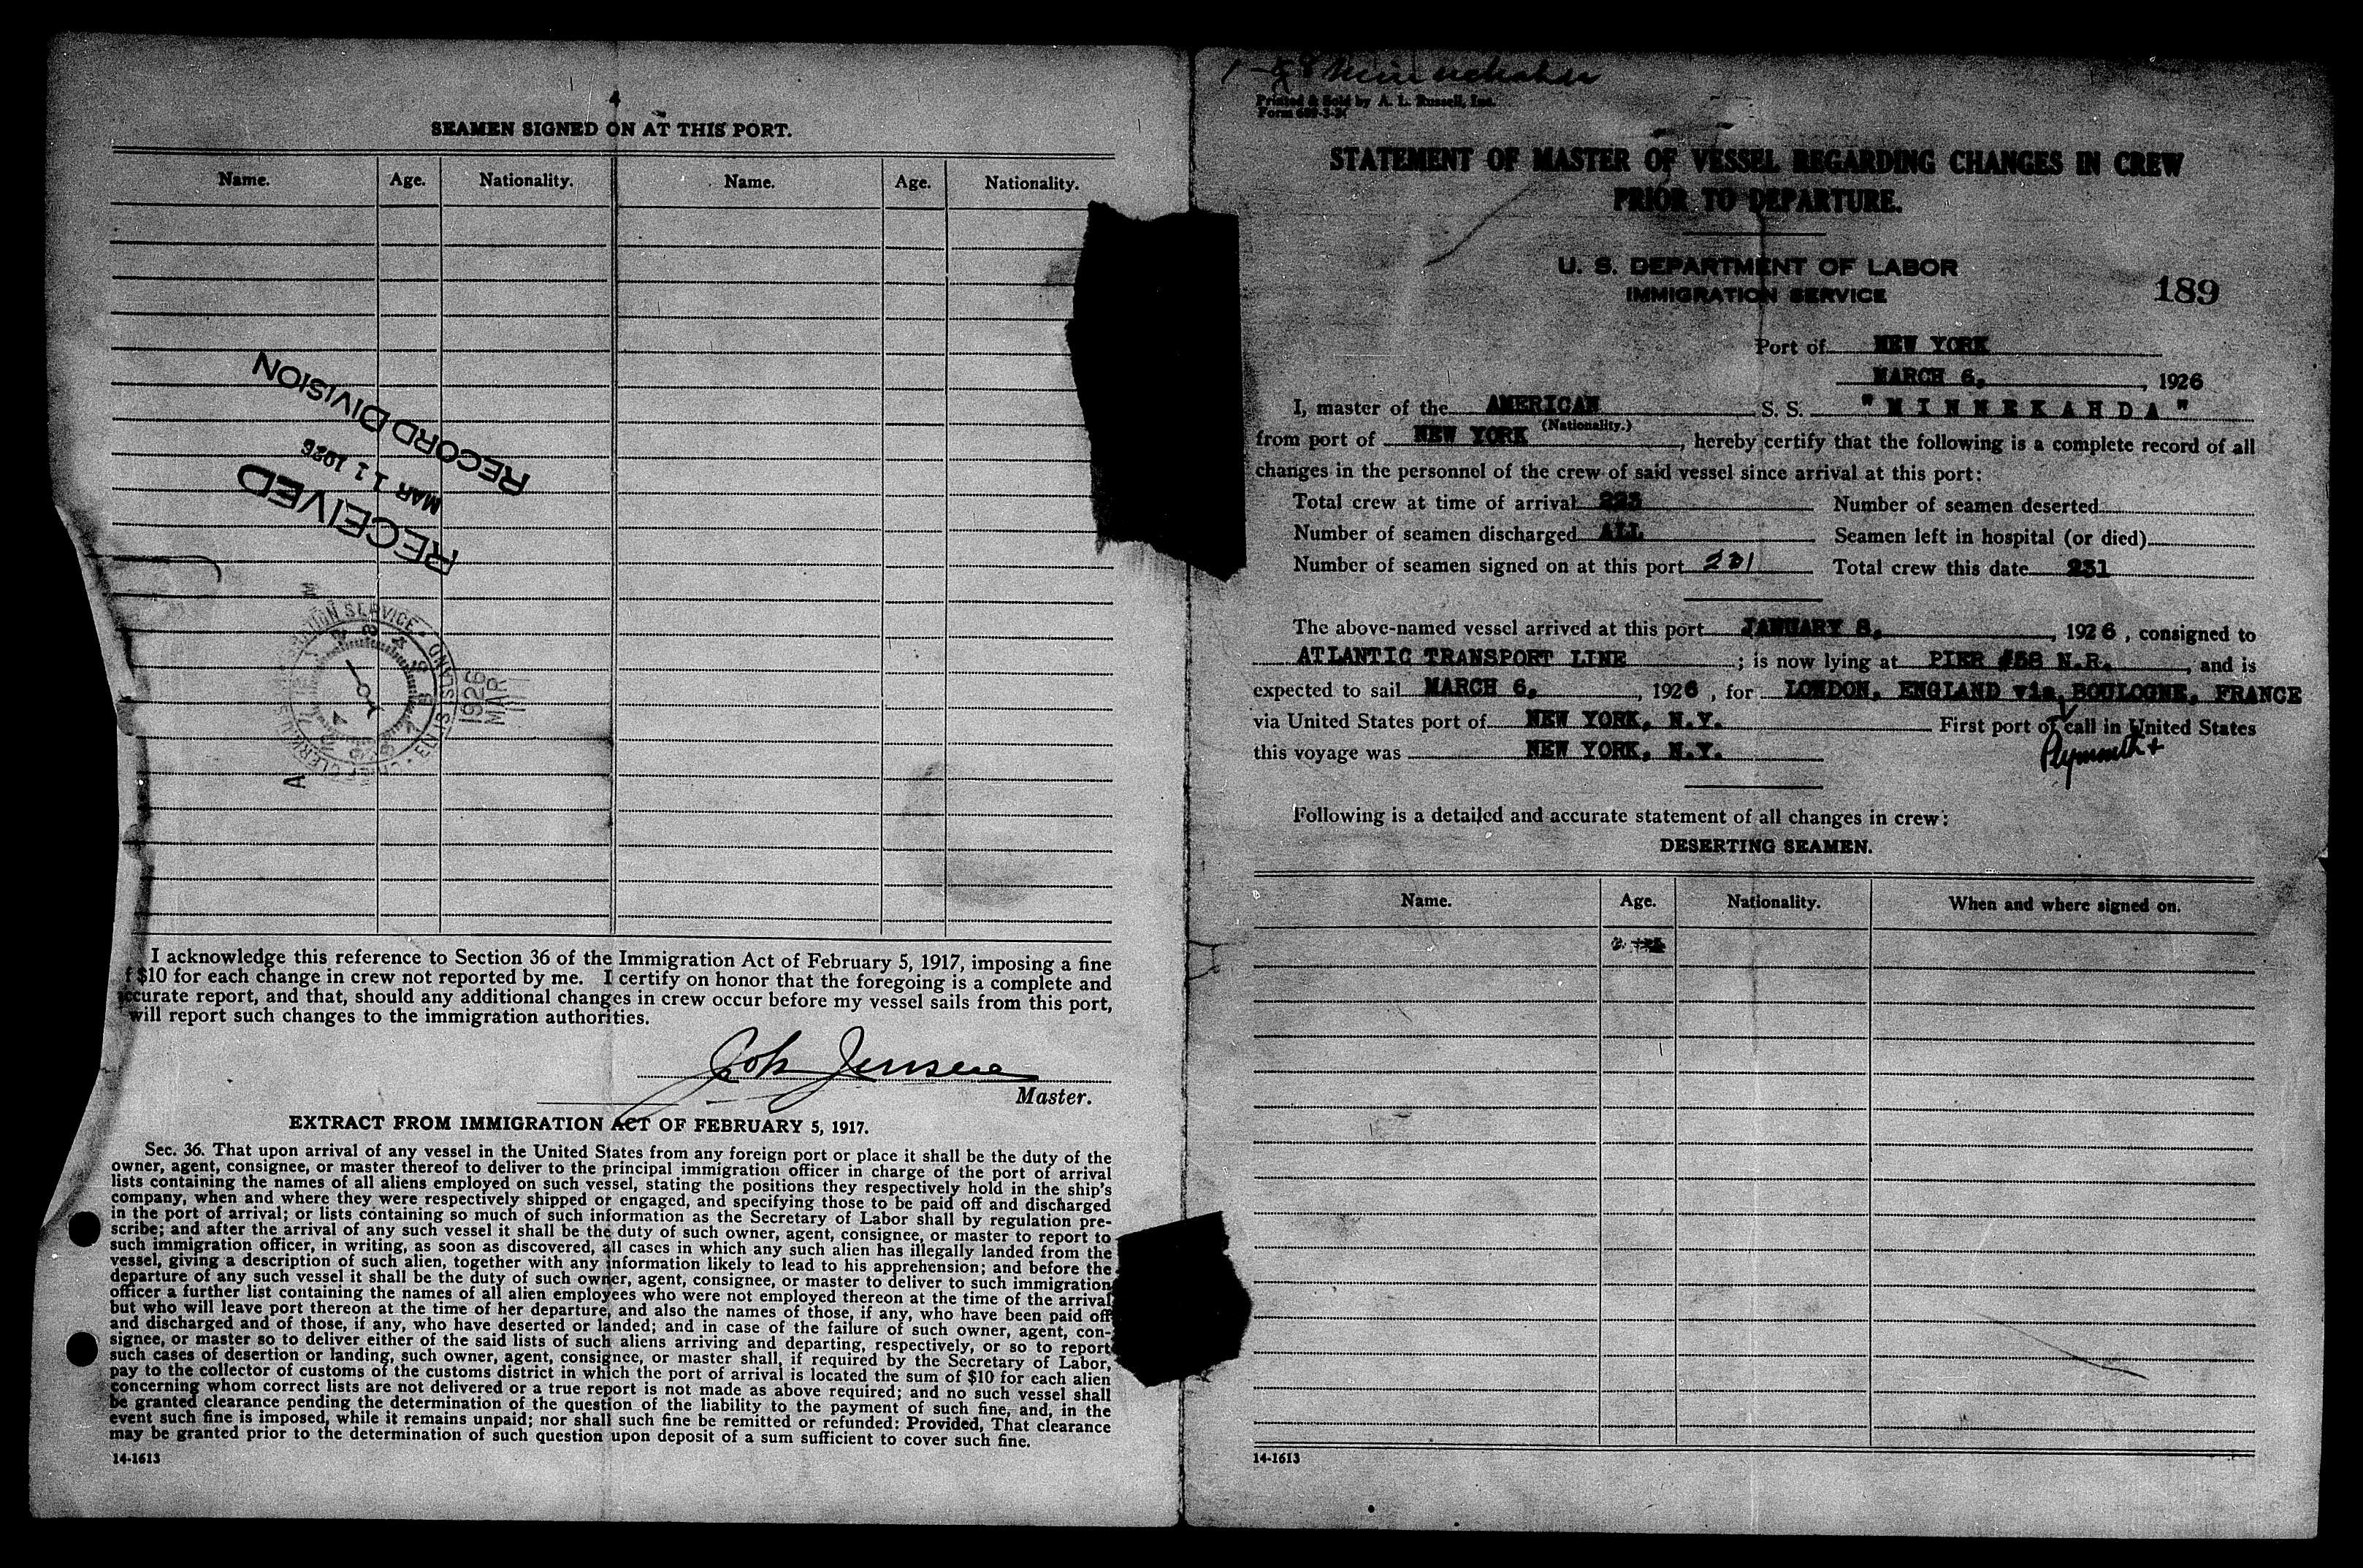 4
SEAMEN SIGNED ON AT THIS PORT.
Name. Age. Nationality. Name. Age. Nationality.
RECEIVED
MAR 11 1926
RECORD DIVISION
1926
MAR
11
I acknowledge this reference to Section 36 of the Immigration Act of February 5, 1917, imposing a fine
f $10 for each change in crew not reported by me. I certify on honor that the foregoing is a complete and
accurate report, and that, should any additional changes in crew occur before my vessel sails from this port,
will report such changes to the immigration authorities.
Joh Jensen
Master.
EXTRACT FROM IMMIGRATION ACT OF FEBRUARY 5, 1917.
Sec. 36. That upon arrival of any vessel in the United States from any foreign port or place it shall be the duty of the
owner, agent, consignee, or master thereof to deliver to the principal immigration officer in charge of the port of arrival
lists containing the names of all aliens employed on such vessel, stating the positions they respectively hold in the ship's
company, when and where they were respectively shipped or engaged, and specifying those to be paid off and discharged
in the port of arrival; or lists containing so much of such information as the Secretary of Labor shall by regulation pre-
scribe; and after the arrival of any such vessel it shall be the duty of such owner, agent, consignee, or master to report to
such immigration officer, in writing, as soon as discovered, all cases in which any such alien has illegally landed from the
vessel, giving a description of such alien, together with any information likely to lead to his apprehension; and before the
departure of any such vessel it shall be the duty of such owner, agent, consignee, or master to deliver to such immigration
officer a further list containing the names of all alien employees who were not employed thereon at the time of the arrival
but who will leave port thereon at the time of her departure, and also the names of those, if any, who have been paid off
and discharged and of those, if any, who have deserted or landed; and in case of the failure of such owner, agent, con-
signee, or master so to deliver either of the said lists of such aliens arriving and departing, respectively, or so to report
such cases of desertion or landing, such owner, agent, consignee, or master shall, if required by the Secretary of Labor,
pay to the collector of customs of the customs district in which the port of arrival is located the sum of $10 for each alien
concerning whom correct lists are not delivered or a true report is not made as above required; and no such vessel shall
be granted clearance pending the determination of the question of the liability to the payment of such fine, and, in the
event such fine is imposed, while it remains unpaid; nor shall such fine be remitted or refunded: Provided, That clearance
may be granted prior to the determination of such question upon deposit of a sum sufficient to cover such fine.
14-1613
Printed & Sold by A. L. Russell, Inc.
STATEMENT OF MASTER OF VESSEL REGARDING CHANGES IN CREW
PRIOR TO DEPARTURE.
U. S. DEPARTMENT OF LABOR
IMMIGRATION SERVICE
189
Port of NEW YORK
MARCH 6, , 1926
I, master of the AMERICAN S. S. "MINNEKAHDA"
(Nationality.)
from port of NEW YORK , hereby certify that the following is a complete record of all
changes in the personnel of the crew of said vessel since arrival at this port:
Total crew at time of arrival 223 Number of seamen deserted
Number of seamen discharged ALL Seamen left in hospital (or died)
Number of seamen signed on at this port 231 Total crew this date 231
The above-named vessel arrived at this port JANUARY 8, , 1926 , consigned to
ATLANTIC TRANSPORT LINE ; is now lying at PIER #58 N.R. , and is
expected to sail MARCH 6, , 1926 , for LONDON, ENGLAND via BOULOGNE, FRANCE
via United States port of NEW YORK, N.Y. First port of call in United States
this voyage was NEW YORK, N.Y. Plymouth +
Following is a detailed and accurate statement of all changes in crew:
DESERTING SEAMEN.
Name. Age. Nationality. When and where signed on.
14-1613